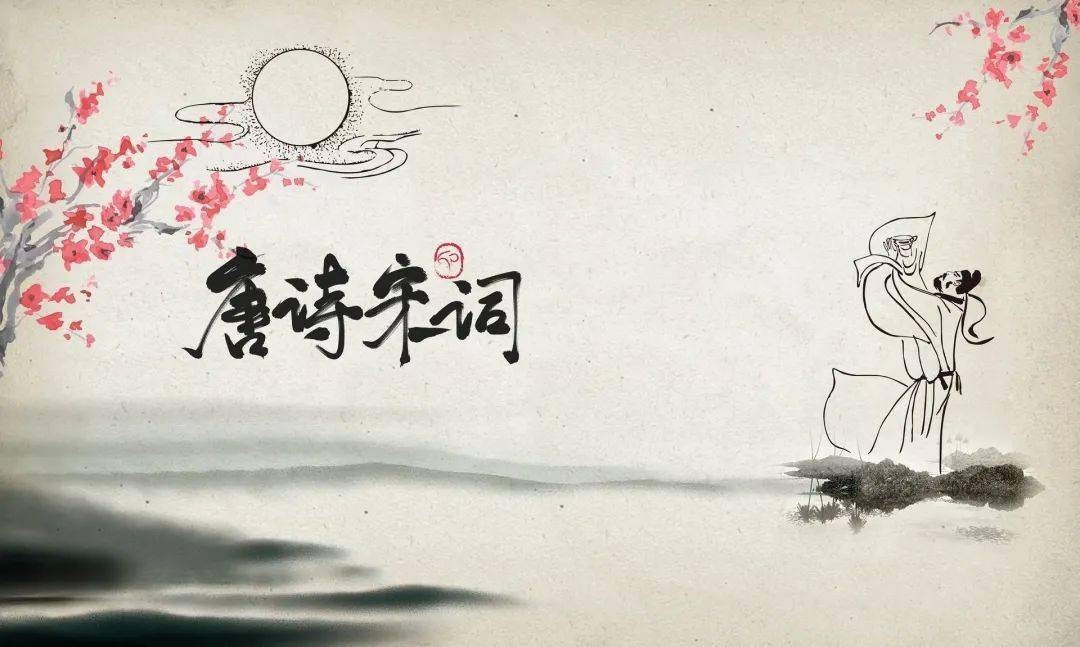 唐诗宋词